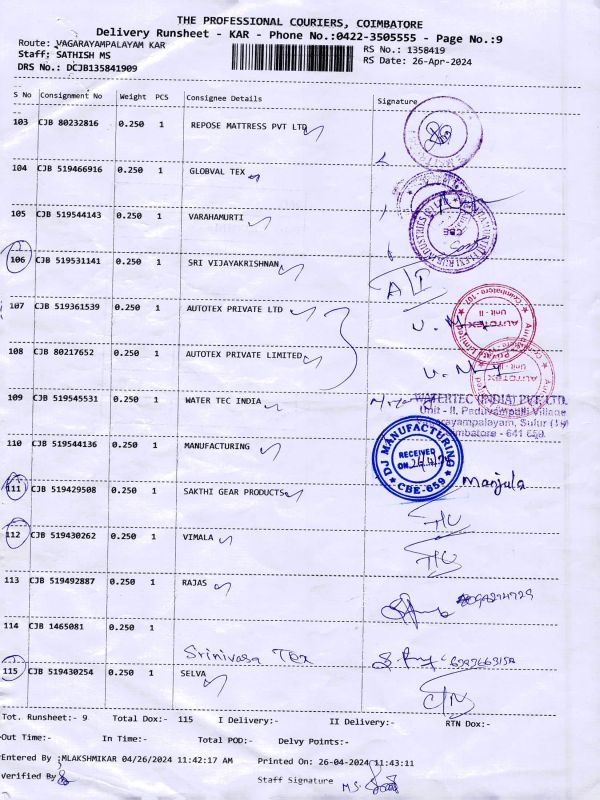 THE PROFESSIONAL COURIERS, COIMBATORE
Delivery Runsheet - KAR - Phone No.:0422-3505555 - Page No.:9
Route: VAGARAYAMPALAYAM KAR
RS No.: 1358419
Staff: SATHISH MS
RS Date: 26-Apr-2024
DRS No.: DCJB135841909
S No Consignment No Weight PCS Consignee Details Signature
103 CJB 80232816 0.250 1 REPOSE MATTRESS PVT LTD
104 CJB 519466916 0.250 1 GLOBVAL TEX
105 CJB 519544143 0.250 1 VARAHAMURTI
CBE
106 CJB 519531141 0.250 1 SRI VIJAYAKRISHNAN
107 CJB 519361539 0.250 1 AUTOTEX PRIVATE LTD
AUTOTEX
Unit - II
108 CJB 80217652 0.250 1 AUTOTEX PRIVATE LIMITED
AUTOTEX
109 CJB 519545531 0.250 1 WATER TEC INDIA
WATERTEC (INDIA) PVT. LTD.
Unit - II, Paduvampalli Village
Sulur
Coimbatore - 641 659.
110 CJB 519544136 0.250 1 MANUFACTURING
DJ MANUFACTURING
RECEIVED
ON
CBE-659
111 CJB 519429508 0.250 1 SAKTHI GEAR PRODUCTS
Manjula
112 CJB 519430262 0.250 1 VIMALA
113 CJB 519492887 0.250 1 RAJAS
114 CJB 1465081 0.250 1
Srinivasa Tex
115 CJB 519430254 0.250 1 SELVA
Tot. Runsheet:- 9 Total Dox:- 115 I Delivery:- II Delivery:- RTN Dox:-
Out Time:- In Time:- Total POD:- Delvy Points:-
Entered By :MLAKSHMIKAR 04/26/2024 11:42:17 AM Printed On: 26-04-2024 11:43:11
Verified By
Staff Signature